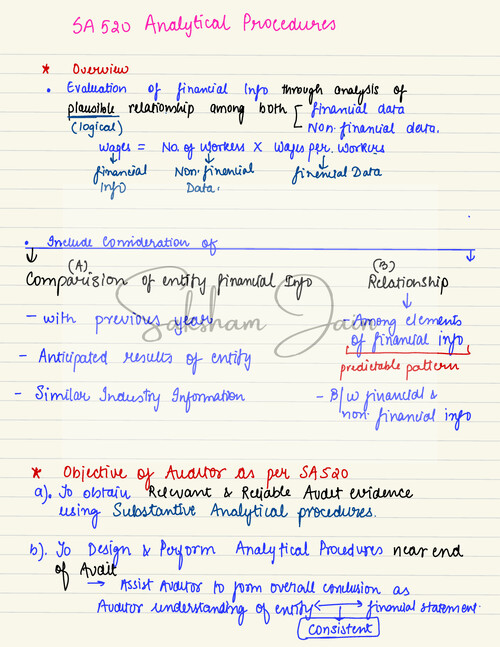 SA 520 Analytical Procedures
* Overview
• Evaluation of financial Info through analysis of
plausible relationship among both [ financial data
(logical) Non. financial data.
Wages = No. of workers X Wages per. workers
financial Info Non. financial Data. financial Data
• Include Consideration of
(A) Comparision of entity financial Info
- with previous year
- Anticipated results of entity
- Similar Industry Information
(B) Relationship
- Among elements
of financial info
predictable pattern
- B/w financial &
non. financial info
Saksham Jain
* Objective of Auditor as per SA 520
a). To obtain Relevant & Reliable Audit evidence
using Substantive Analytical procedures.
b). To Design & Perform Analytical Procedures near end
of Audit
→ Assist Auditor to form overall conclusion as
Auditor understanding of entity ↔ financial statement.
Consistent